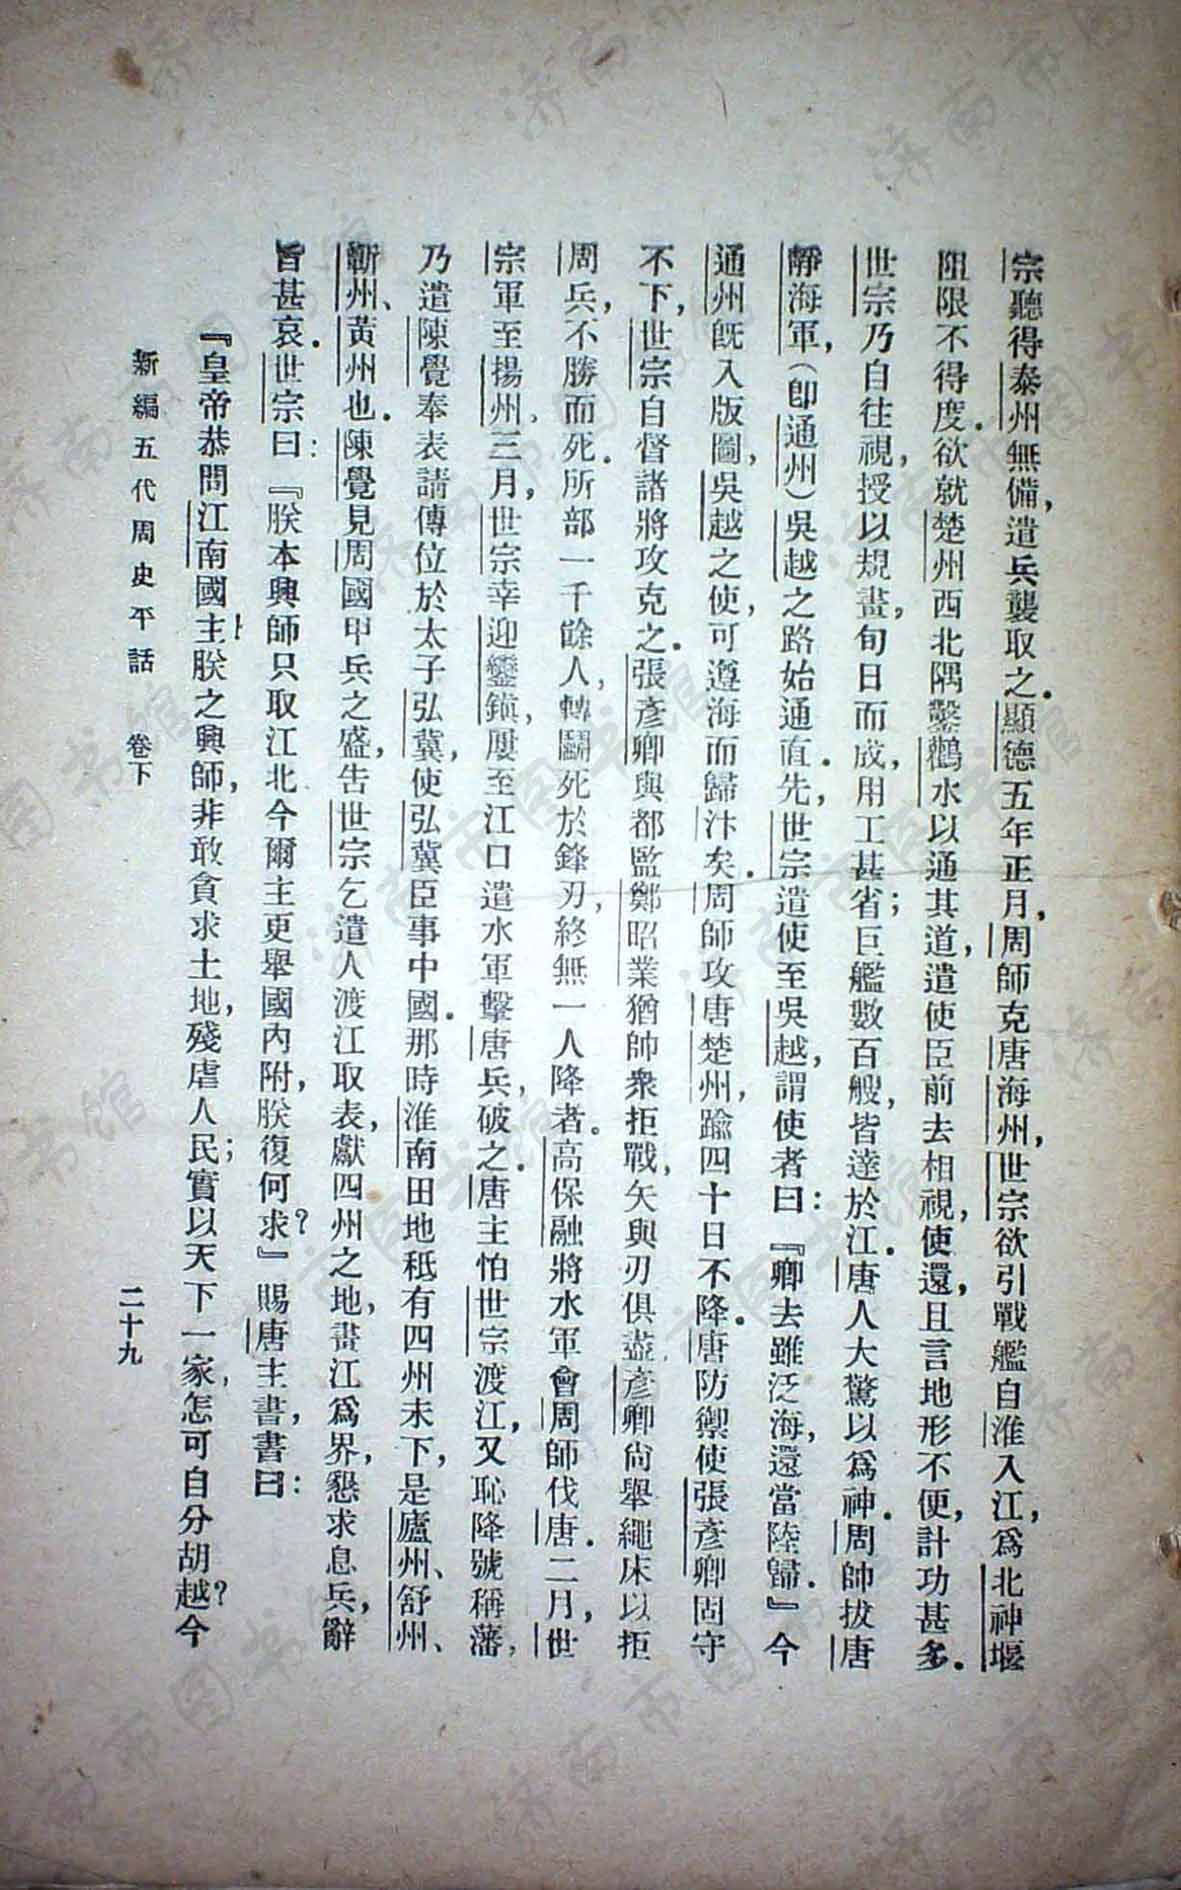 宗聽得泰州無備，遣兵襲取之．顯德五年正月，周師克唐海州，世宗欲引戰艦自淮入江，爲北神堰
阻限不得度．欲就楚州西北隅鑿鸛水以通其道，遣使臣前去相視，使還，且言地形不便，計功甚多．
世宗乃自往視，授以規畫，旬日而成，用工甚省；巨艦數百艘，皆達於江．唐人大驚以爲神．周師拔唐
靜海軍，（卽通州）吳越之路始通．直先，世宗遣使至吳越，謂使者曰：『卿去雖泛海，還當陸歸．』今
通州旣入版圖，吳越之使，可遵海而歸汴矣．周師攻唐楚州，踰四十日不降．唐防禦使張彥卿固守
不下，世宗自督諸將攻克之．張彥卿與都監鄭昭業猶帥衆拒戰，矢與刃俱盡，彥卿尙舉繩床以拒
周兵，不勝而死．所部一千餘人，轉鬬死於鋒刃，終無一人降者。高保融將水軍會周師伐唐．二月，世
宗軍至揚州。三月，世宗幸迎鑾鎭，屢至江口遣水軍擊唐兵，破之．唐主怕世宗渡江，又恥降號稱藩，
乃遣陳覺奉表請傳位於太子弘冀，使弘冀臣事中國．那時淮南田地秪有四州未下，是廬州、舒州、
蘄州、黃州也．陳覺見周國甲兵之盛，告世宗乞遣人渡江取表，獻四州之地，畫江爲界，懇求息兵，辭
旨甚哀．世宗曰：『朕本興師只取江北今爾主更舉國內附，朕復何求？』賜唐主書，書曰：
『皇帝恭問江南國主朕之興師，非敢貪求土地，殘虐人民；實以天下一家，怎可自分胡越？今
新編五代周史平話　卷下
二十九
濟南市図书馆